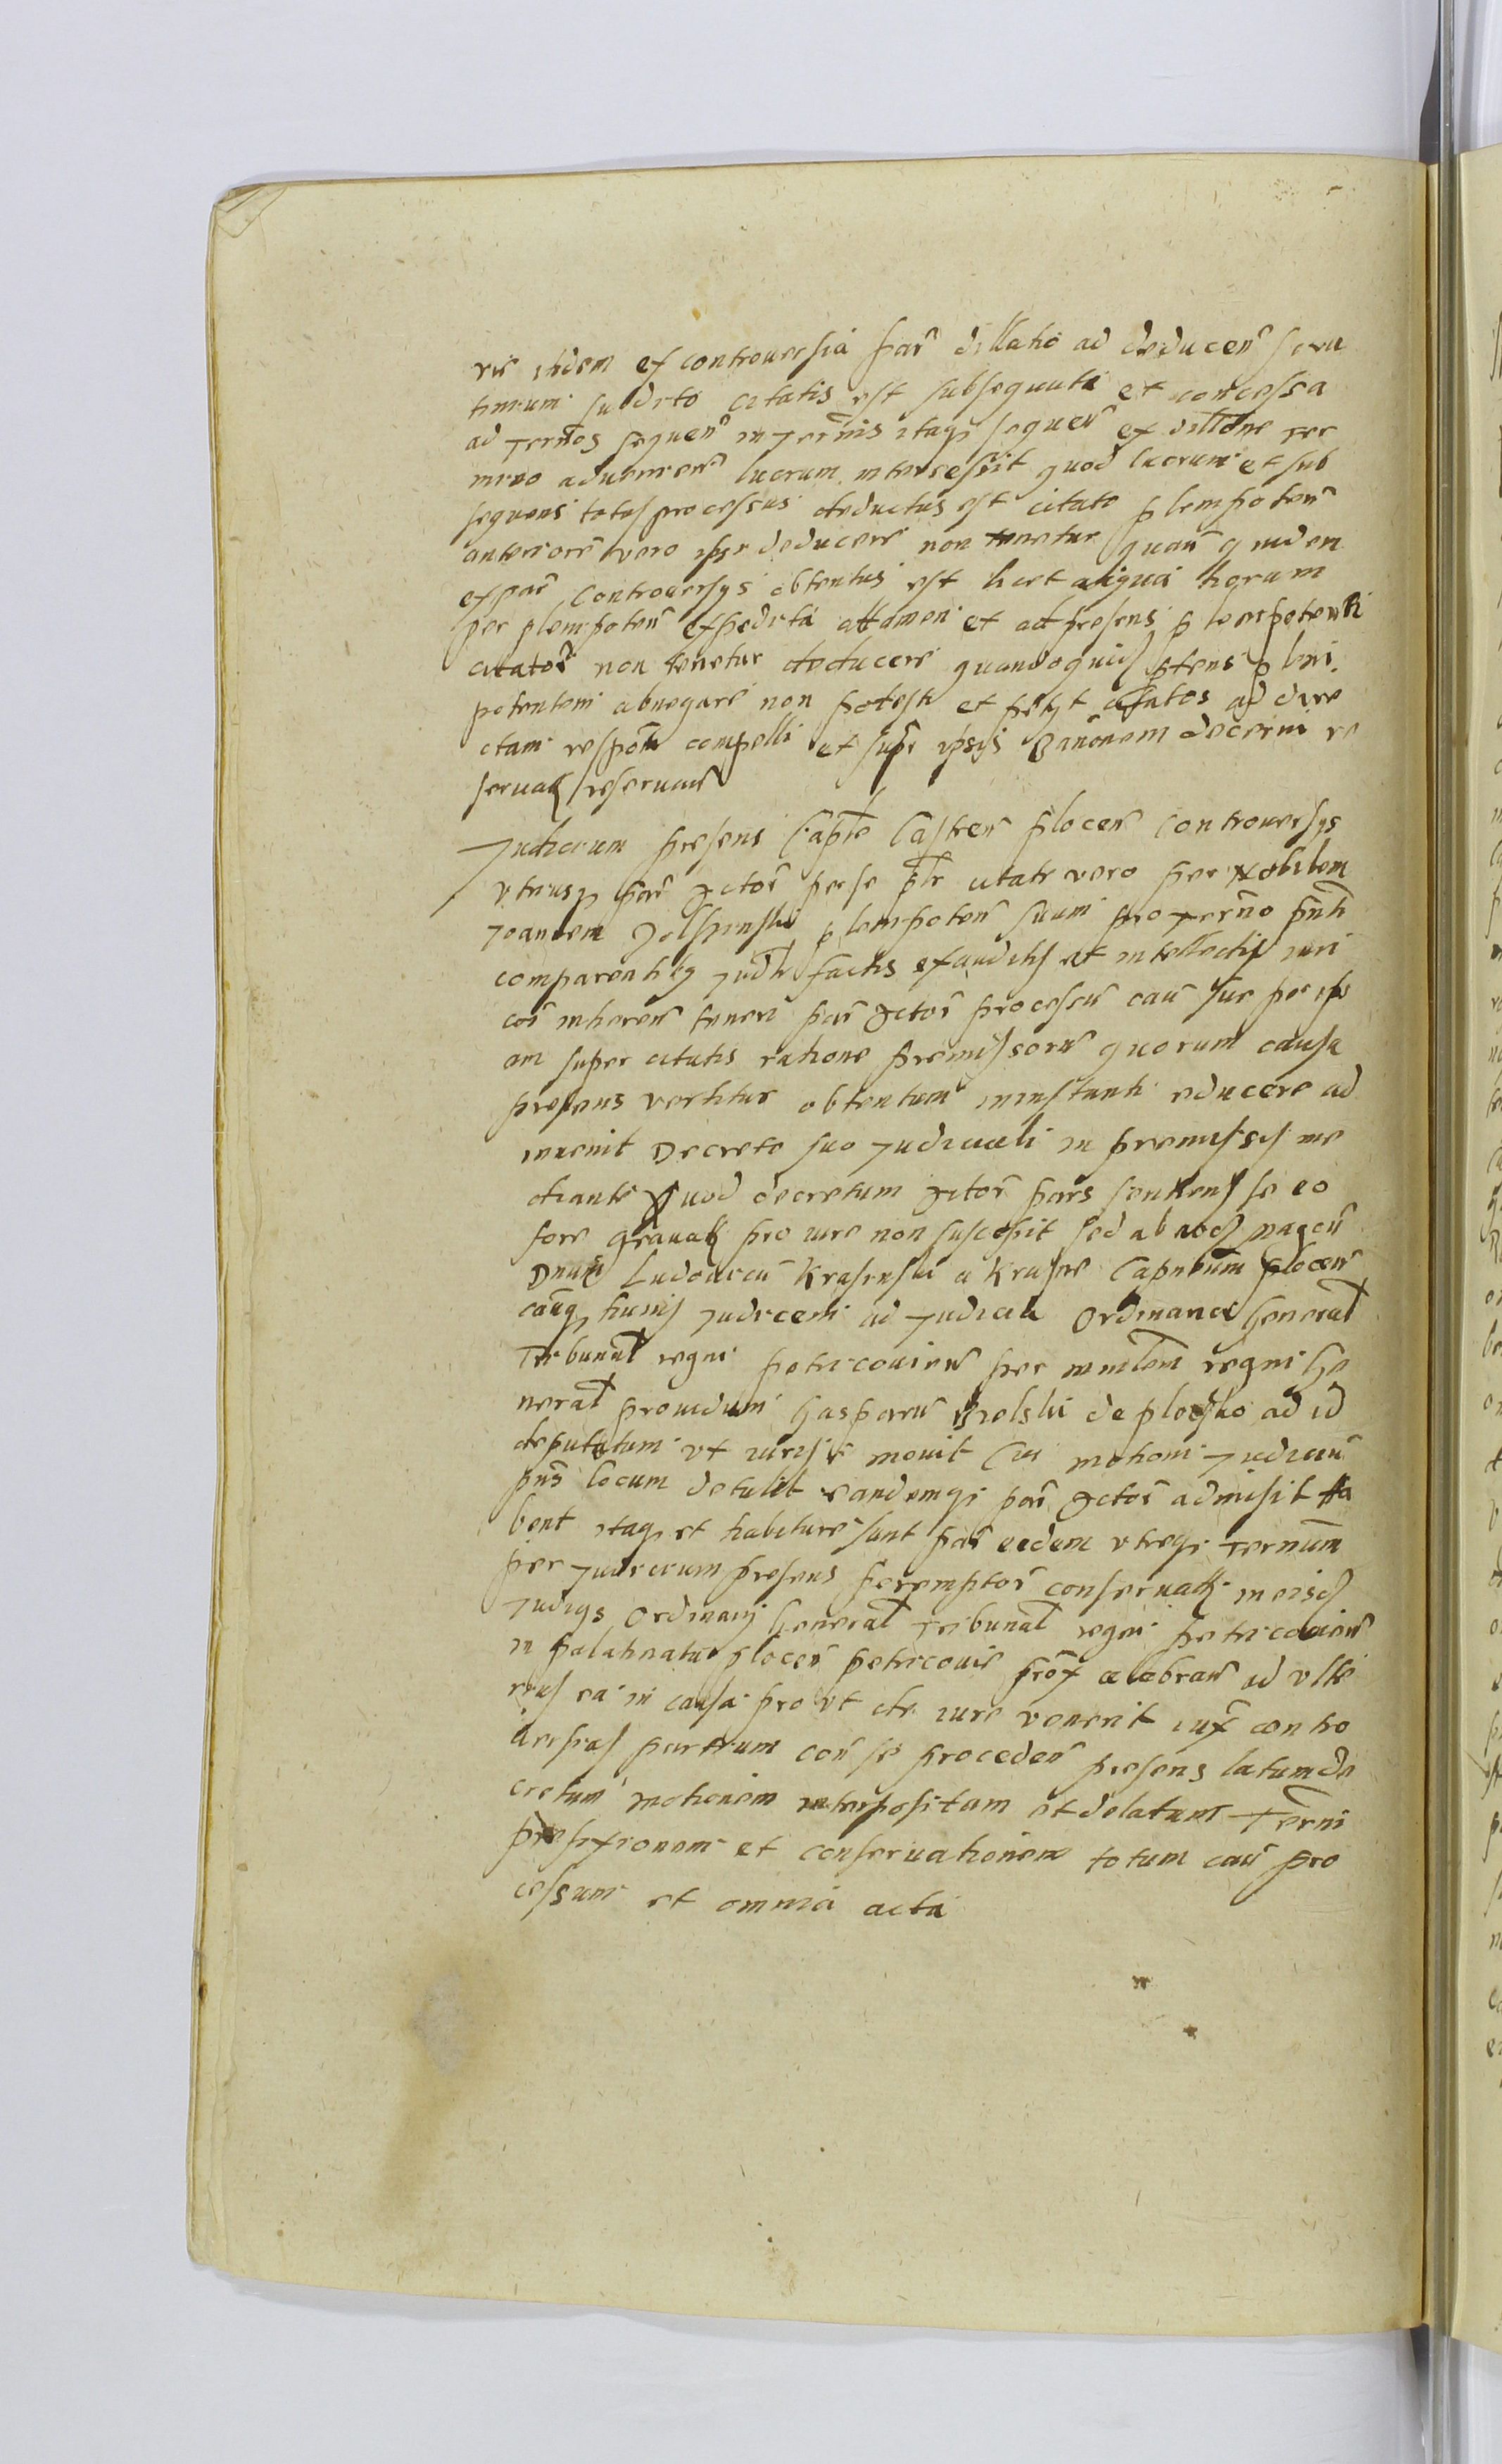 ris ibidem ex controuersia par dillatio ad deducen scru
tinium subdito citatis est subsequuta et concessa
ad Termos sequen in Terminis itaqꝫ sequen ex dillone ter
mino adueniens lucrum intercessit quod lucrum et sub
sequens totus processus deductus est citato plenipoten
anteriorē vero ipse deducere non tenetur quam quidem
expar Controuersys obtentus est licet aliqua horum
per plenipoten expedita attamen et ad presens plenipotenti
citator non tenetur deducere quandoquidē plenj
potentem abnegare non potest et petyt citatos ad dire
ctam respōm compelli et supr ipsis Banōnem decerni re
seruatꝫ reseruan
Judicium presens Capitle Castren plocen Controuersys
vtriusqꝫ par Actor per se pltr citati vero per Nobilem
Joannem plenipoten suum pro Termo pnti
comparentibꝫ Judtr factis exauditis et intellectis iuri
coi inheren teneri par Actor processū caū sue per ips
am super citatis ratione premissorū quorum causa
presens vertitur obtentum ininstanti educere ad
inuenit Decreto suo Judiciali in premissis me
diante Quod decretum Actor pars sentiens se eo
fore grauatꝫ pro iure non suscepit sed ab eodꝫ magcū
Dnum Ludouicū Krasinski a Krasne Capneum plocen
cauqꝫ huius Judicem ad Judicia Ordinaria General
Tribunal regni petricouien per minlem regni Ge
neral prouidum Gasparū Bielski de plocsko ad id
deputatum vt iuris ē mouit Cui motioni Judiciū
pns locum detulit eandemqꝫ par Actor admisit Ha
bent itaqꝫ et habiture sunt par eedem vtreqꝫ Termum
per Judicium presens peremptor conseruatꝫ in eisdꝫ
Judiys Ordinarij General Tribunal regni petricouien
in palatinatu plocen petricouie prox celebran ad vlte
rius ea in causa pro vt de iure venerit iux contro
uersias partium cor se proceden presens latum de
cretum motionem interpositam et delatam Termi
prefixionem et conseruationem totum caū pro
cessum et omnia acta